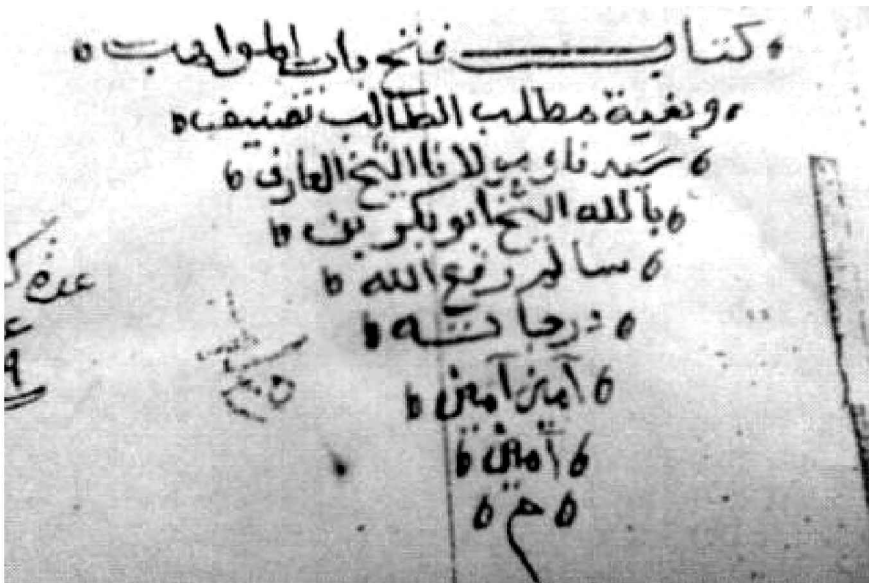 كتاب فتح باب المواهب
وبغية مطلب الطالب تصنيف
سيدنا ومولانا الشيخ العارف
بالله الشيخ ابو بكر بن
سالم رفع الله
درجاته
آمين آمين
آمين
م
عدة